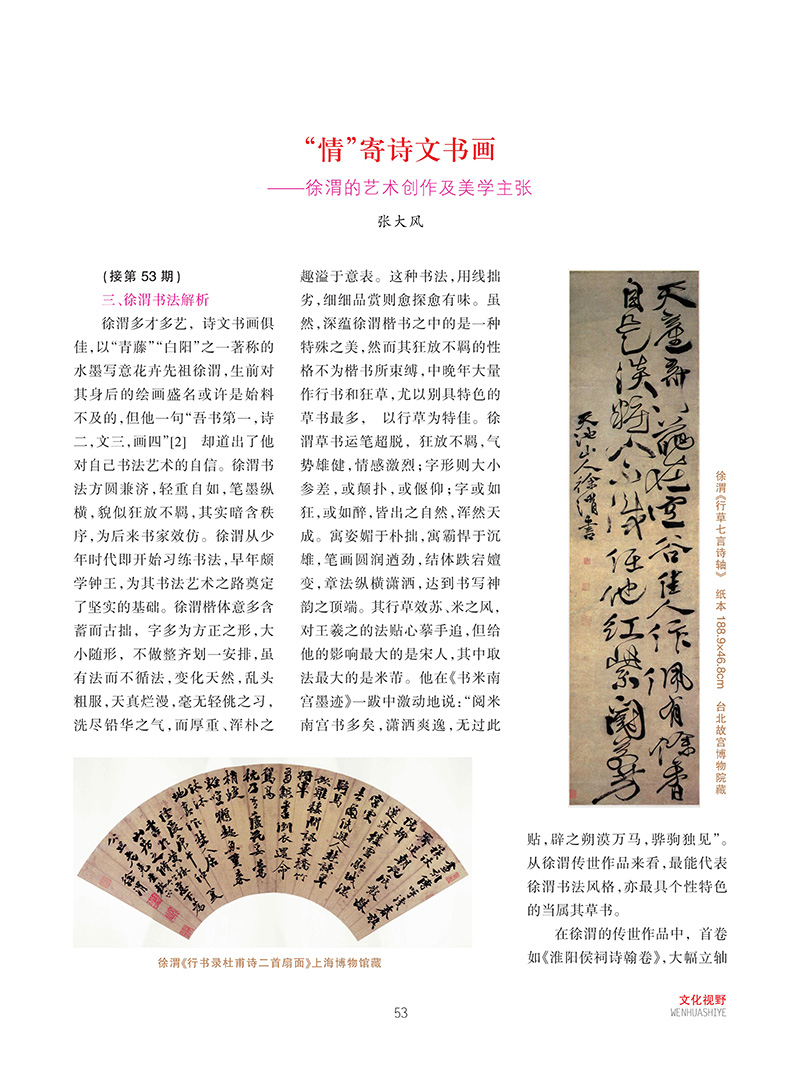 “情”寄诗文书画
——徐渭的艺术创作及美学主张
张大风
(接第 53 期)
三、徐渭书法解析
徐渭多才多艺，诗文书画俱
佳，以“青藤”“白阳”之一著称的
水墨写意花卉先祖徐渭，生前对
其身后的绘画盛名或许是始料
不及的，但他一句“吾书第一，诗
二，文三，画四”[2] 却道出了他
对自己书法艺术的自信。徐渭书
法方圆兼济，轻重自如，笔墨纵
横，貌似狂放不羁，其实暗含秩
序，为后来书家效仿。徐渭从少
年时代即开始习练书法，早年颇
学钟王，为其书法艺术之路奠定
了坚实的基础。徐渭楷体意多含
蓄而古拙，字多为方正之形，大
小随形，不做整齐划一安排，虽
有法而不循法，变化天然，乱头
粗服，天真烂漫，毫无轻佻之习，
洗尽铅华之气，而厚重、浑朴之
趣溢于意表。这种书法，用线拙
劣，细细品赏则愈探愈有味。虽
然，深蕴徐渭楷书之中的是一种
特殊之美，然而其狂放不羁的性
格不为楷书所束缚，中晚年大量
作行书和狂草，尤以别具特色的
草书最多， 以行草为特佳。徐
渭草书运笔超脱，狂放不羁，气
势雄健，情感激烈；字形则大小
参差，或颠扑，或偃仰；字或如
狂，或如醉，皆出之自然，浑然天
成。寓姿媚于朴拙，寓霸悍于沉
雄，笔画圆润遒劲，结体跌宕嬗
变，章法纵横潇洒，达到书写神
韵之顶端。其行草效苏、米之风，
对王羲之的法贴心摹手追，但给
他的影响最大的是宋人，其中取
法最大的是米芾。他在《书米南
宫墨迹》一跋中激动地说：“阅米
南宫书多矣，潇洒爽逸，无过此
天池山人徐渭书
徐渭《行草七言诗轴》 纸本 188.9×46.8cm 台北故宫博物院藏
徐渭《行书录杜甫诗二首扇面》上海博物馆藏
贴，辟之朔漠万马，骅驹独见”。
从徐渭传世作品来看，最能代表
徐渭书法风格，亦最具个性特色
的当属其草书。
在徐渭的传世作品中，首卷
如《淮阳侯祠诗翰卷》，大幅立轴
53
文化视野
WENHUASHIYE